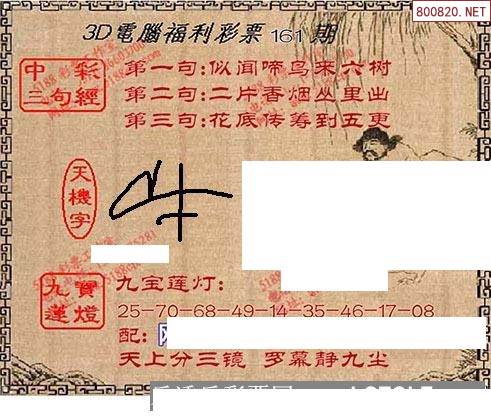 800820.NET
3D電腦福利彩票161期
中彩
三句經
第一句:似闻啼鸟来六树
第二句:二片香烟丛里出
第三句:花底传筹到五更
天機字
九寶
蓮燈
九宝莲灯:
25-70-68-49-14-35-46-17-08
配:
天上分三镜 罗幕静九尘